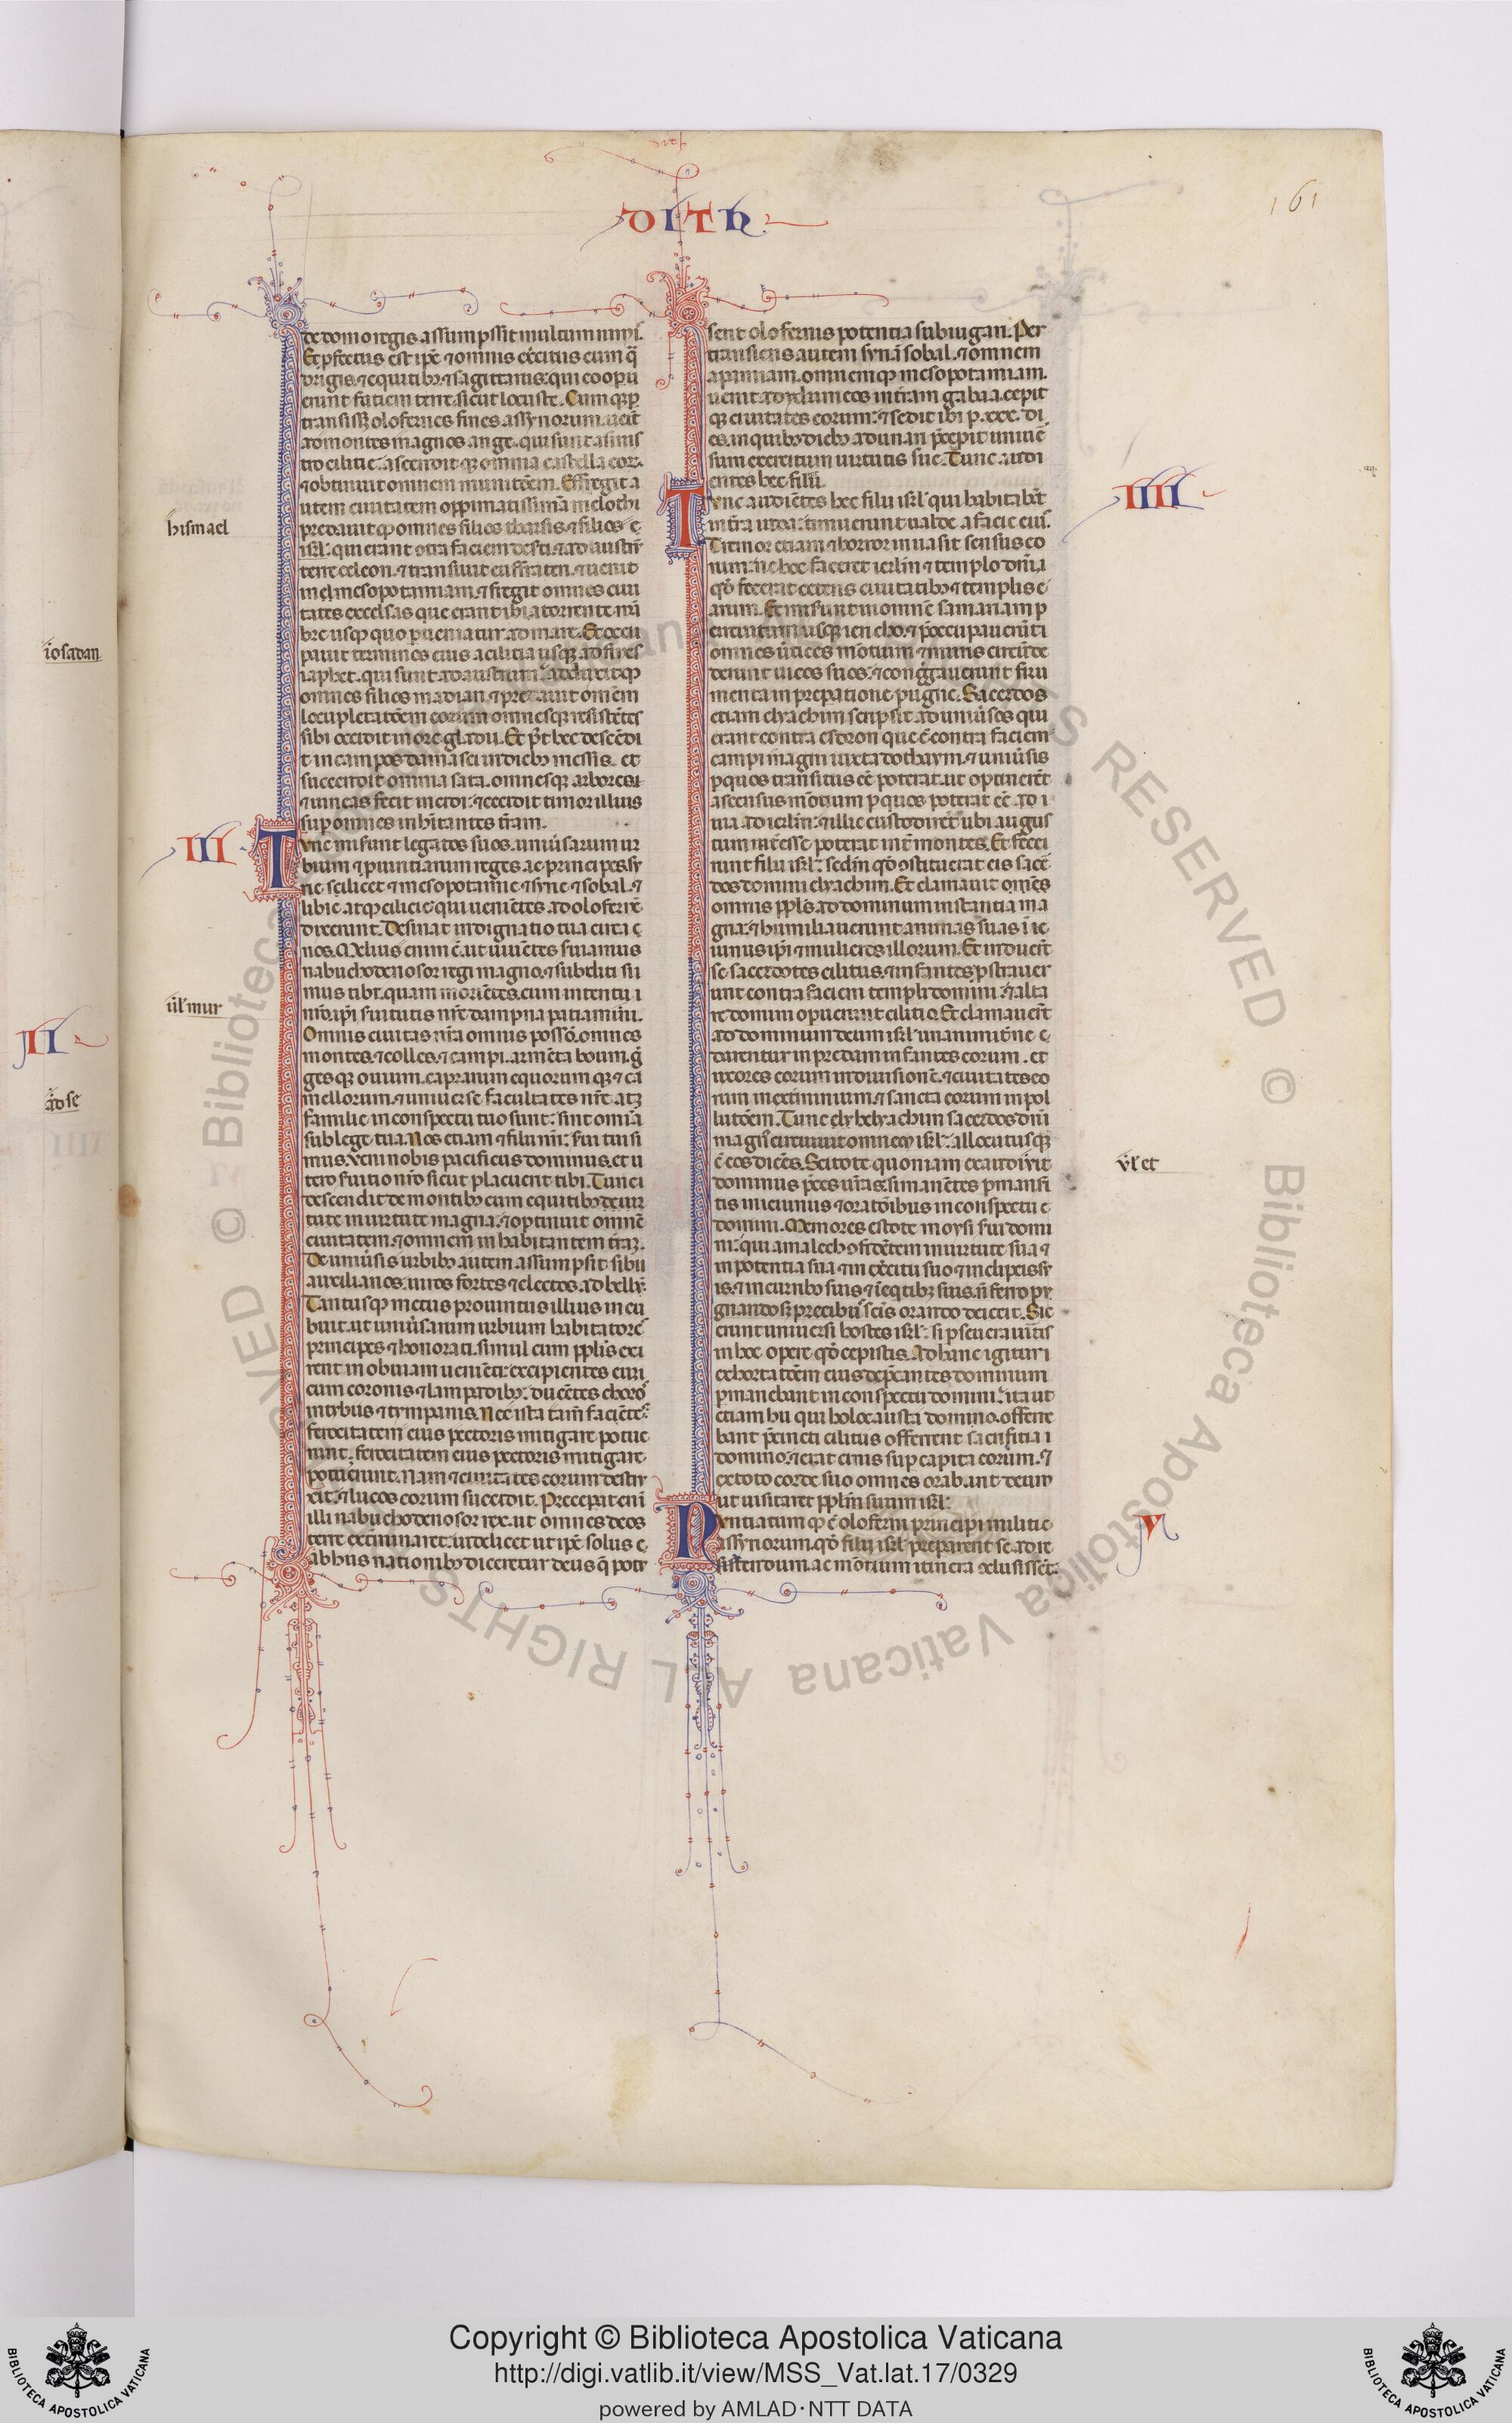 DITH
161
de domo regis assumpsit multum nimis.
Et pfectus est ipe ⁊ omnis exercitus cum q̃
drigis ⁊ equitibꝫ ⁊ sagittariis: qui cooperu
erunt faciem terre sicut locuste. Cumqꝫ p
transisset olofernes fines assyriorum uenit
ad montes magnos ange. qui sunt a sinis
tro cilitie: ascenditqꝫ omnia castella eorꝫ
⁊ obtinuit omnem munitōem. Effregit a
utem ciuitatem oppinatissimā melothi
predauitqꝫ omnes filios tharsis. ⁊ filios
isrl: qui erant cōtra faciem deserti. ⁊ ad austrū
terre celeon. ⁊ transiuit eufraten. ⁊ uenit
in mesopotamiam. ⁊ fregit omnes ciui
tates excelsas que erant ibi a torrente mā
bre usqꝫ quo pueniatur ad mare. Et occu
pauit terminos eius a cilitia usqꝫ ad fines
iaphet. qui sunt ad austrum. adduxitqꝫ
omnes filios madian. ⁊ predauit omēm
locupletatōem eorum omnesqꝫ resistētes
sibi occidit in ore gladii. Et pꝰt hec descēdi
t in campos damasci in diebꝫ messis. et
succendit omnia sata. omnesqꝫ arbores
⁊ uineas fecit incidi: ⁊ cecidit timor illius
sup omnes inhītantes tr̄am.
Tunc misunt legatos suos. uniūsarum ur
bium ⁊ puintiarum reges ac principes. sy
rie scilicet ⁊ mesopotamie ⁊ syrie ⁊ sobal. ⁊
libie. atqꝫ cilicie qui ueniētes ad oloferñe
dixerunt. Desinat indignatio tua circa
nos. Melius enim ē. ut uiuētes siuiamus
nabuchodenosor regi magno. ⁊ subditi si
mus tibi. quam moriētes. cum interitu
nr̄o. ipi siuitutis nr̄e dampna patiamur.
Omnis ciuitas nr̄a omnis possō. omnes
montes. ⁊ colles. ⁊ campi. armēta boum. g̃
gesqꝫ ouium. caprarum equorumqꝫ ⁊ ca
mellorum. ⁊ uniuerse facultates nr̄e atqꝫ
familie in conspectu tuo sunt: sint omīa
sub lege tua. Nos etiam ⁊ filii nri: siui tui si
mus. Veni nobis pacificus dominus. et u
tere siuitio nr̄o sicut placuerit tibi. Tunc
descendit de montibꝫ cum equitibꝫ de uir
tute in uirtute magna. ⁊ optinuit omnē
ciuitatem. ⁊ omnem inhabitantem tr̄am.
De uniūsis urbibꝫ autem assumpsit sibi
auxiliarios. uiros fortes ⁊ electos. ad bellū.
Tantusqꝫ metus prouintiis illius incu
buit. ut uniūsarum urbium habitatores
principes ⁊ honorati. simul cum pplis exi
rent in obuiam uenienti: excipientes eum
cum coronis ⁊ lampadibꝫ: ducētes choros
in tybus ⁊ tympanis. Nec ista tam̄ faciētes
ferocitatem eius pectoris mitigare potue
runt. ferocitatem eius pectoris mitigare
potuerunt. Nam ⁊ ciuitates eorum destru
xit. ⁊ lucos eorum succendit. Preceperat eni
illi nabuchodenosor rex. ut omnes deos
terre exterminaret. uidelicet ut ipe solus
abhus nationibꝫ diceretur deus q̄ potu
sent olofernis potentia subiugari. Per
transiens autem syriā sobal. ⁊ omnem
apamiam. omnemqꝫ mesopotamiam.
uenit ad ydumeos in tr̄am gabaa. cepit
qꝫ ciuitates eorum: ⁊ sedit ibi p. xxx. di
es. in quibꝫ diebꝫ adunari p̄cepit uniuē
sum exercitum uirtutis sue. Tunc audi
entes hec filii
Tunc audiētes hec filii isrl' qui habitabāt
in tr̄a iuda: timuerunt ualde a facie eius.
Timor etiam ⁊ horror inuasit sensus eo
rum. ne hec faceret ierlm̄ ⁊ templo dn̄i
qd fecerat ceteris ciuitatibꝫ ⁊ templis e
arum. Et misunt in omnē samariam p
circuitum usqꝫ iericho. ⁊ p̄occupauerūt
omnes ūtices mōtium ⁊ muris circūde
derunt uicos suos. ⁊ cong̃gauerunt fru
menta in prepatione pugne. Sacerdos
etiam elyachim scripsit ad uniūsos qui
erant contra esdrom que ē contra faciem
campi magni iuxta dothaym. ⁊ uniūsis
p quos transitus eē poterat. ut optinerēt
ascensus mōtium p quos poterat eē ad i
tiā ad ierlm̄: ⁊ illic custodirēt ubi angus
tum int̄esse poterat int̄ montes. Et feceī
runt filii isrl': sedm qd ꝯstituerat eis sacē
dos domini elyachim. Et clamauit omēs
omnis ppls ad dominum instantia ma
gna: ⁊ humiliauerunt animas suas ī ie
iuniis ipi ⁊ mulieres illorum. Et indueīt
se sacerdotes cilitiis. ⁊ infantes pstrauer
unt contra faciem templi domini. ⁊ alta
re domini opuerunt cilitio. Et clamauerūt
ad dominum deum isrl' unanimit̄ ne
darentur in predam infantes eorum. et
uxores eorum in diuisionē. ⁊ ciuitates eo
rum in exterminium. ⁊ sancta eorum in pol
lutōem. Tunc elyachim sacerdos dn̄i
magnꝰ circuiuit omnem isrl': allocutusqꝫ
ē eos dicēs. Scitote quoniam exaudiuit
dominus p̄ces ūras. si manētes pmansi
tis in ieiuniis ⁊ oratōibus in conspectu
domini. Memores estote moysi siui domi
ni: qui amalech ꝯfidētem in uirtute sua ⁊
in potentia sua ⁊ in ex̄citu suo ⁊ in clipeis su
is. ⁊ in curribꝫ suis ⁊ ī equitibꝫ suis. nō ferro pu
gnando sꝫ precibꝫ scīs orando deiecit. Sic
erunt uniuersi hostes isrl': si pseueraūitis
in hoc opere qd cepistis. Ad hanc igitur
exhortatōem eius dep̄cantes dominum
pmanebant in conspectu domini: ita ut
etiam hii qui holocausta domino. offere
bant p̄cincti cilitiis offerrent sacrificia
domino. ⁊ erat cinis sup capita eorum. ⁊
ex toto corde suo omnes orabant deum
ut uisitaret pplm suum isrl'.
Nuntiatumqꝫ ē oloferni principi militie
assyriorum. qd filii isrl' prepararent se ad re
sistendum. ac mōtium itinera ꝯclusissēt.
hismael
iosadan
III
ul' mur
II
ad se
IIII
ul' et
V
Copyright © Biblioteca Apostolica Vaticana
http://digi.vatlib.it/view/MSS_Vat.lat.17/0329
powered by AMLAD·NTT DATA
BIBLIOTECA APOSTOLICA VATICANA
BIBLIOTECA APOSTOLICA VATICANA
© Biblioteca Apostolica Vaticana ALL RIGHTS RESERVED